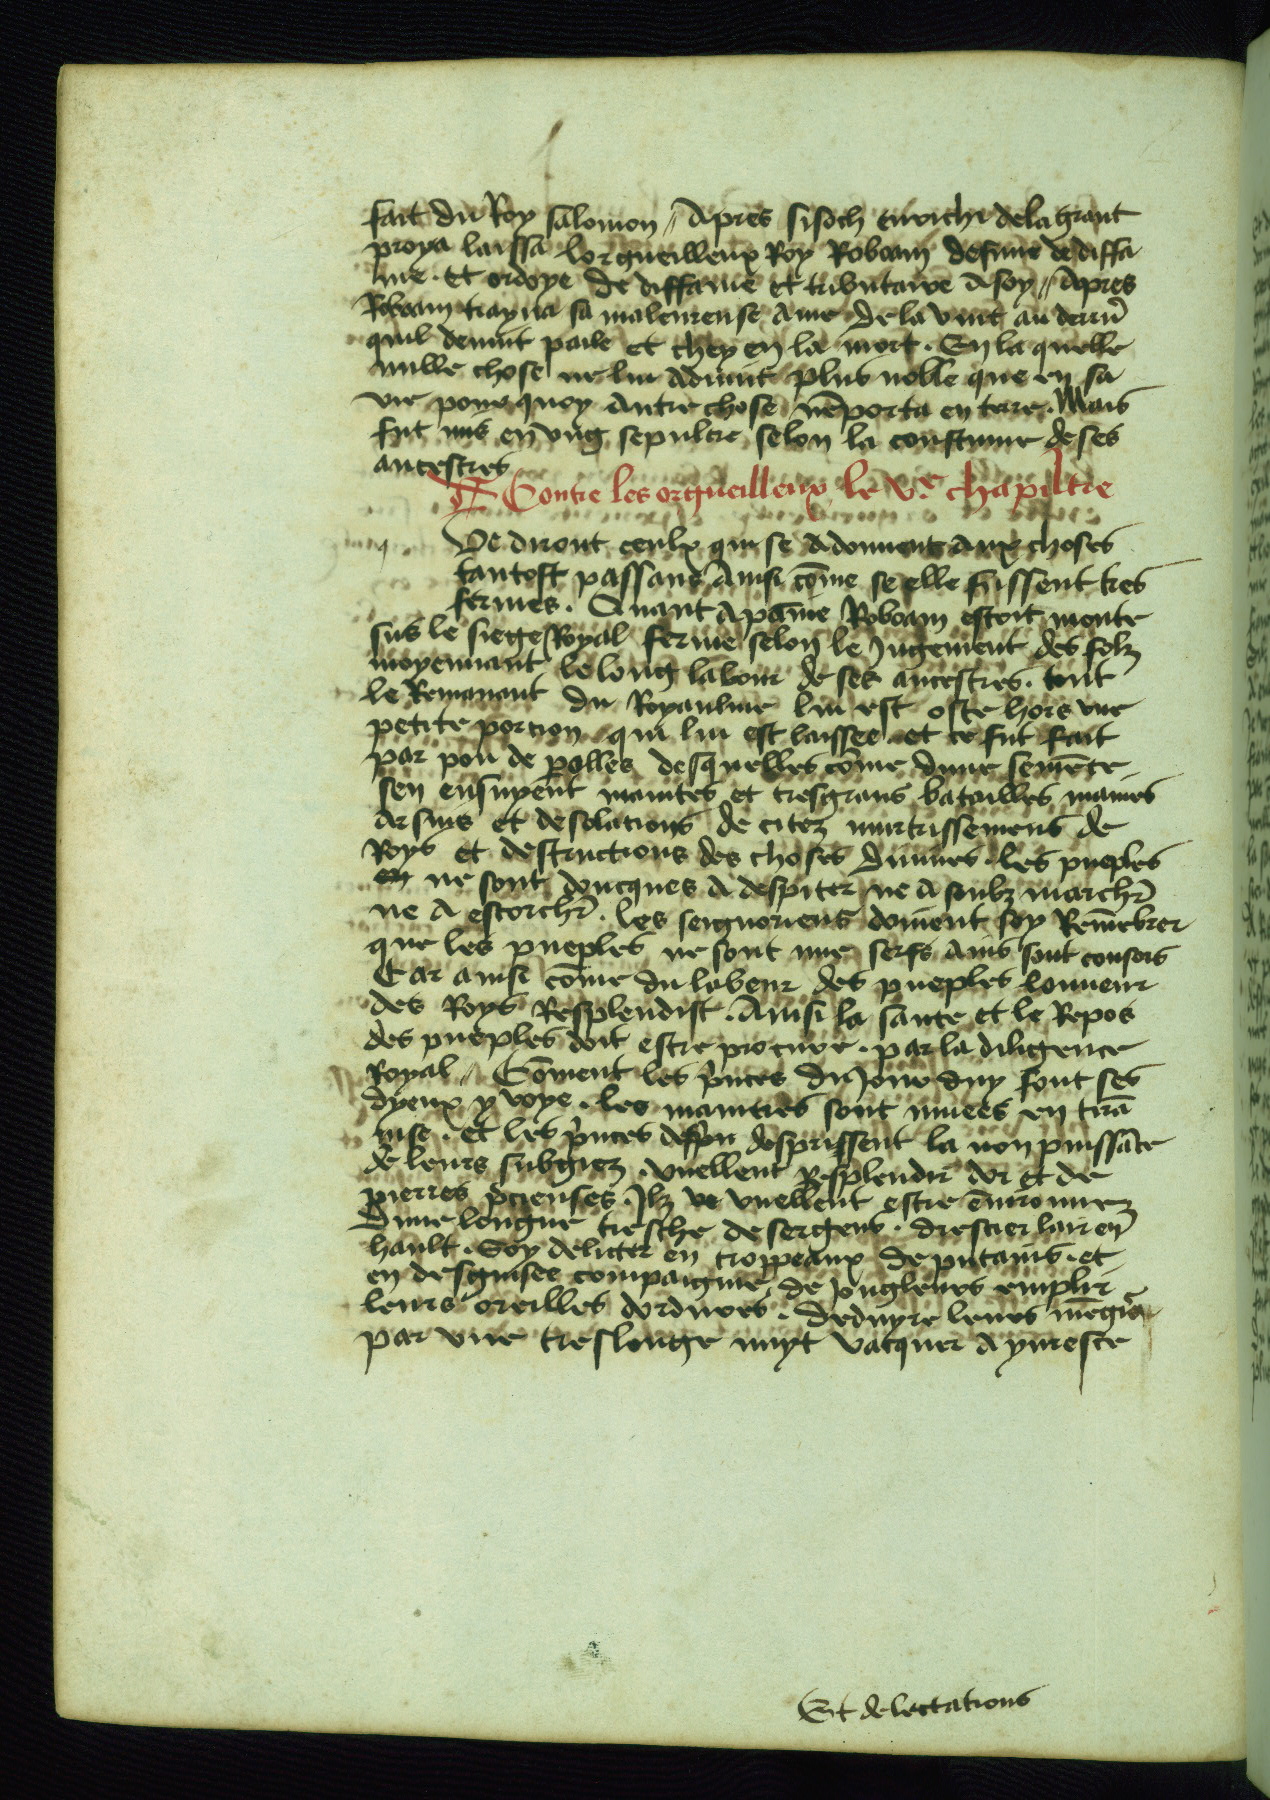 fait du Roy salomon // Apres sisoch enrichi dela grant
proya laissa lorgueilleux Roy Roboam de diffa
me . et ordoye de diffame et tributaire a soy // Apres
Roboam trayna sa maleureuse ame de la vint au derrñ
quil devint paile et chey en la mort . En la quelle
nulle chose ne lui advint plus noble que en sa
vie pour quoy autre chose nẽporta en terre . Mais
fut mis en vng sepulcre selon la coustume de ses
ancestres
Contre les orgueilleux le ve chapiltre
Ve diront ceulx qui se adonnent aux choses
tantost passans ainsi cõme se elle fussent tres
fermes . Quant a pãme Roboam estoit monte
sus le siege Royal ferme selon le jugement des folz
moyennant le long labour de ses ancestres . tout
le Remanant du Royaulme lui est oste hors vne
petite portion qui lui est laissee . et ce fut fait
par pou de polles desquelles cõme dune semẽce
sen ensuyent maintes et tresgrans batailles maines
arsins et desolations de citez murtrissemens de
Roys et destructions des choses diuines . les pueples
ne sont doncques a despiter ne a soubz marchr̃
ne a escorchr̃ . les seignoriens doivent soy Remẽbrer
que les pueples ne sont mie serfs ains sont consers
Car ainsi cõme du labeur des pueples lonneur
des Roys Resplendist . Ainsi la sante et le Repos
des pueples doit estre procure . par la diligence
Royal // Cõment les prĩces du jour duy font ses
dyeux y voye . les manieres sont muees en tirã
nise . et les prĩces desprissent la non puissãce
de leurs subgiez . vuellent Resplendir dor et de
pierres p̃cieuses . Jlz vuellent estre ẽuironnez
dune longue tresche de sergens . drescier lair en
hault . Soy deliter en troppeaux de putains . et
en desguisee compaignie de jongleurs emplir
leurs oreilles dordures . deduyre leurs
par vne treslonge nuyt vacquer a yuresce
Et delectations